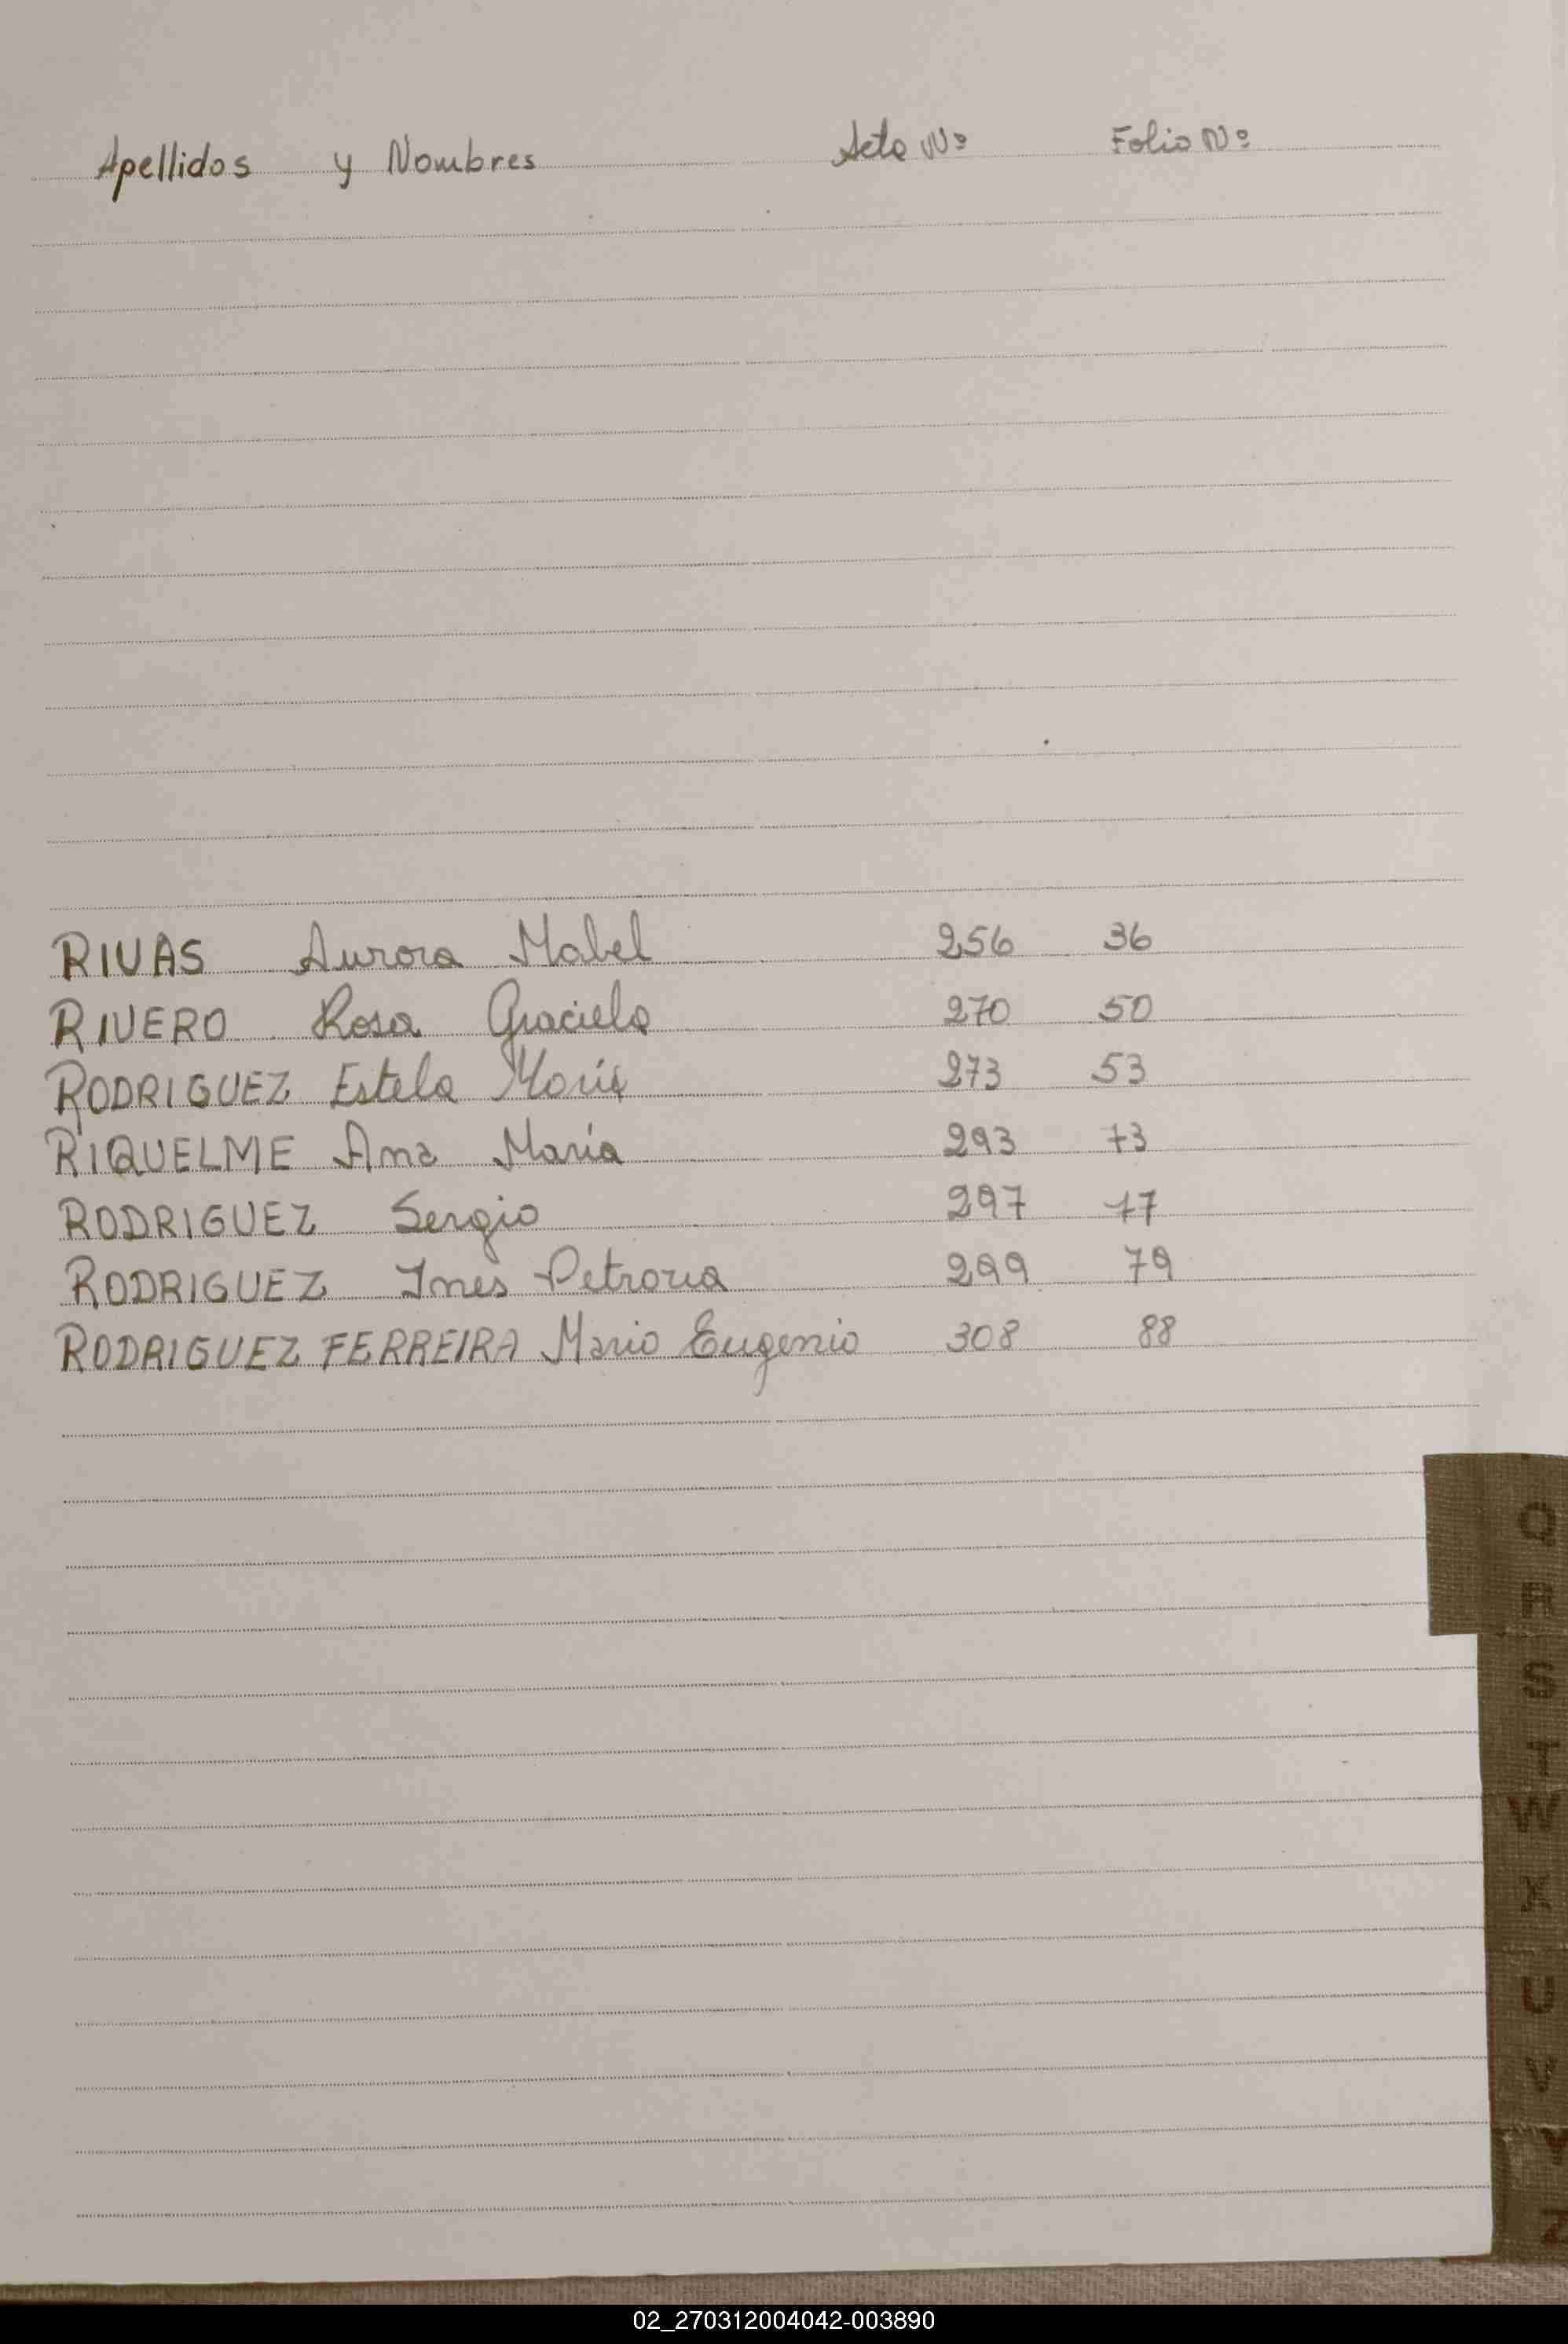 Apellidos y Nombres Acta Nº Folio Nº
RIVAS Aurora Mabel 256 36
RIVERO Rosa Graciela 270 50
RODRIGUEZ Estela María 273 53
RIQUELME Ana María 293 73
RODRIGUEZ Sergio 297 77
RODRIGUEZ Ines Petrona 299 79
RODRIGUEZ FERREIRA Mario Eugenio 308 88
Q
R
S
T
W
X
U
V
Y
Z
02_270312004042-003890